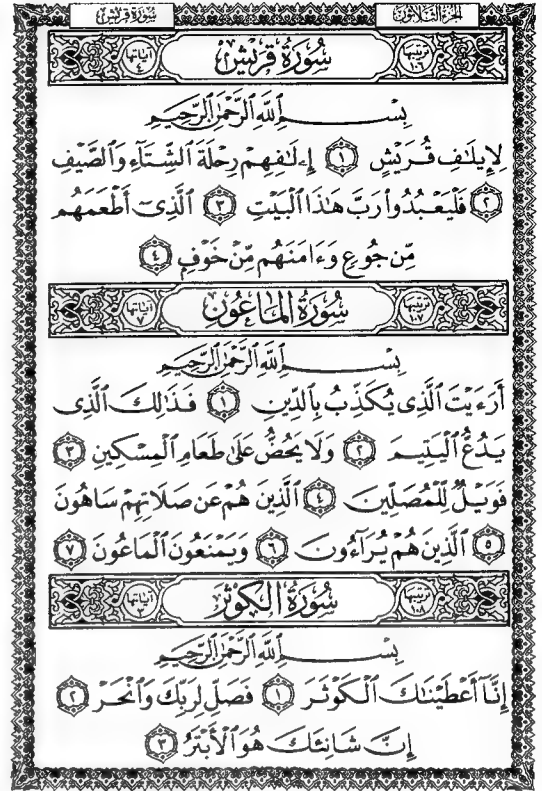 الجزء الثلاثون سورة قريش
ترتيبها ١٠٦ سُورَةُ قُرَيْشٍ آياتها ٤
بِسْمِ ٱللَّهِ ٱلرَّحْمَٰنِ ٱلرَّحِيمِ
لِإِيلَٰفِ قُرَيْشٍ ١ إِۦلَٰفِهِمْ رِحْلَةَ ٱلشِّتَآءِ وَٱلصَّيْفِ
٢ فَلْيَعْبُدُوا۟ رَبَّ هَٰذَا ٱلْبَيْتِ ٣ ٱلَّذِىٓ أَطْعَمَهُم
مِّن جُوعٍ وَءَامَنَهُم مِّنْ خَوْفٍۭ ٤
ترتيبها ١٠٧ سُورَةُ المَاعُونِ آياتها ٧
بِسْمِ ٱللَّهِ ٱلرَّحْمَٰنِ ٱلرَّحِيمِ
أَرَءَيْتَ ٱلَّذِى يُكَذِّبُ بِٱلدِّينِ ١ فَذَٰلِكَ ٱلَّذِى
يَدُعُّ ٱلْيَتِيمَ ٢ وَلَا يَحُضُّ عَلَىٰ طَعَامِ ٱلْمِسْكِينِ ٣
فَوَيْلٌ لِّلْمُصَلِّينَ ٤ ٱلَّذِينَ هُمْ عَن صَلَاتِهِمْ سَاهُونَ
٥ ٱلَّذِينَ هُمْ يُرَآءُونَ ٦ وَيَمْنَعُونَ ٱلْمَاعُونَ ٧
ترتيبها ١٠٨ سُورَةُ الكَوْثَرِ آياتها ٣
بِسْمِ ٱللَّهِ ٱلرَّحْمَٰنِ ٱلرَّحِيمِ
إِنَّآ أَعْطَيْنَٰكَ ٱلْكَوْثَرَ ١ فَصَلِّ لِرَبِّكَ وَٱنْحَرْ ٢
إِنَّ شَانِئَكَ هُوَ ٱلْأَبْتَرُ ٣